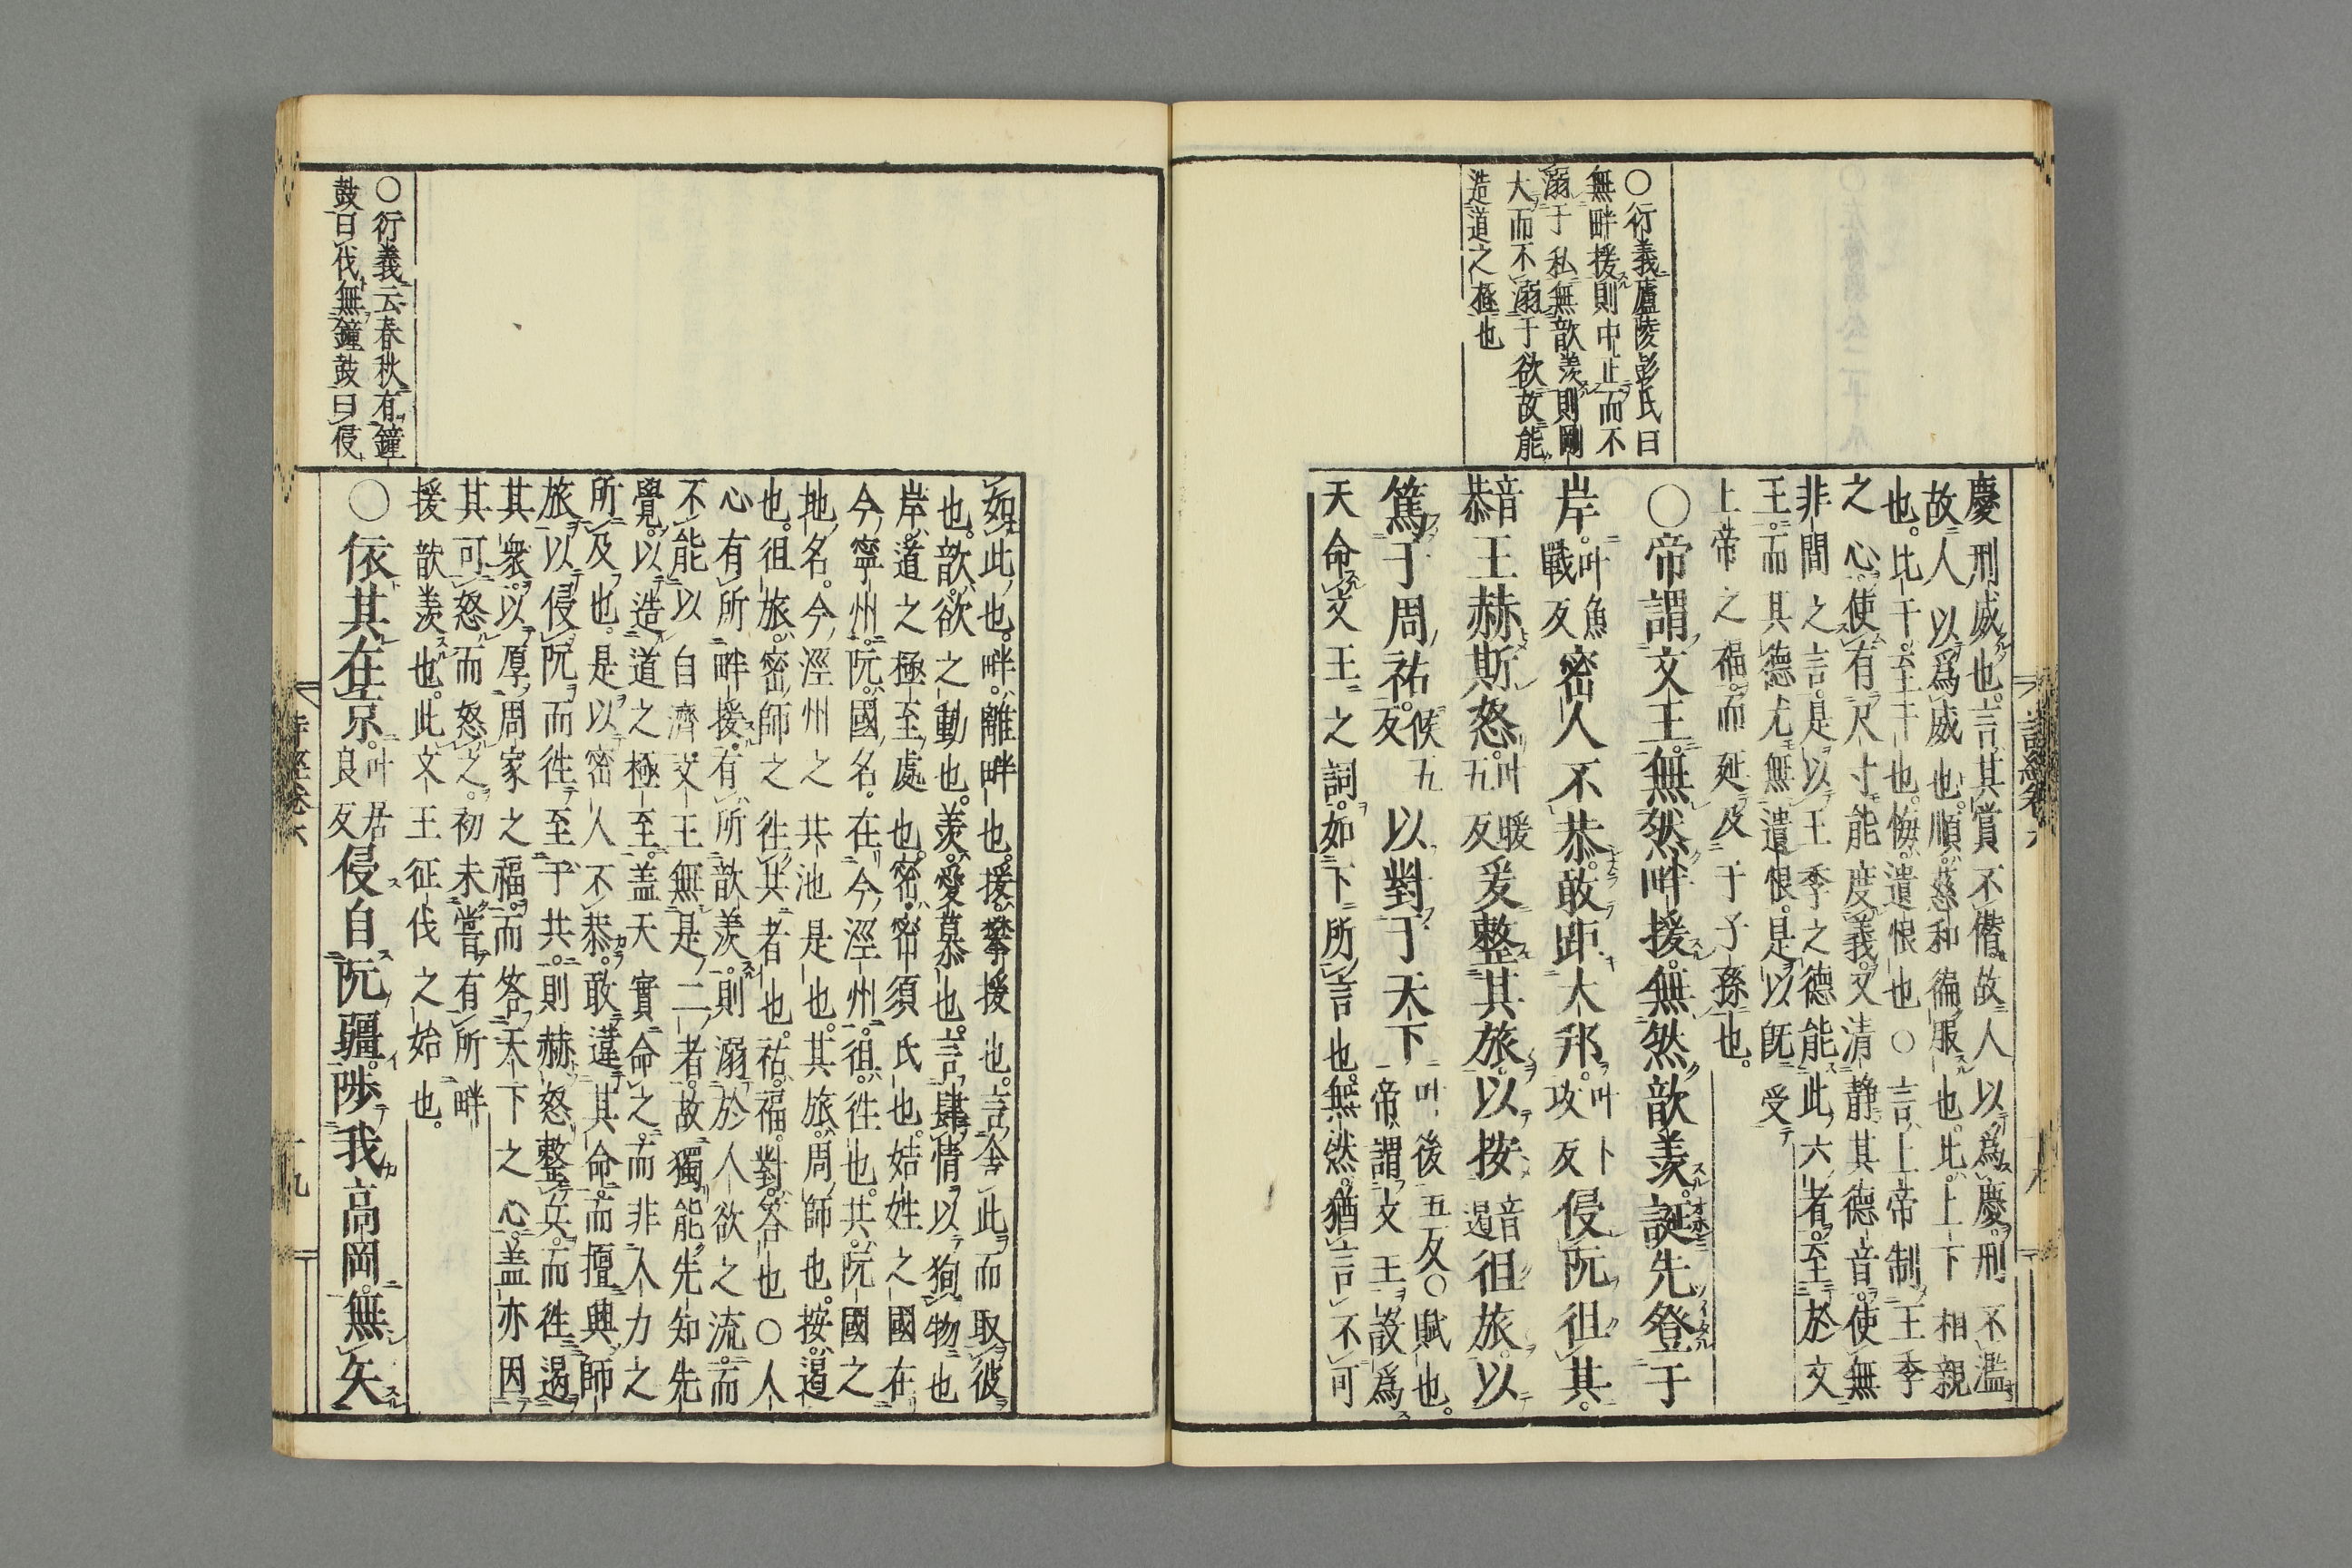 ○衍義廬陵彭氏曰
無畔援則中正而不
溺于私無歆羨則剛
大而不溺于欲故能
造道之極也
慶刑威也言其賞不僭故人以爲慶刑不濫
故人以爲威也順慈和徧服也比上下相親
也比于至于也悔遺恨也○言上帝制王季
之心使有尺寸能度義又清靜其德音使無
非間之言是以王季之德能此六者至於文
王而其德尤無遺恨是以旣受
上帝之福而延及于子孫也
○帝謂文王無然畔援無然歆羨誕先登于
岸叶魚戰反密人不恭敢距大邦叶卜攻反侵阮徂其
音恭王赫斯怒叶暖五反爰整其旅以按音遏徂旅以
篤于周祜候五反以對于天下叶後五反○賦也帝謂文王設爲
天命文王之詞如下所言也無然猶言不可
如此也畔離畔也援攀援也言舍此而取彼
也歆欲之動也羨愛慕也言肆情以狥物也
岸道之極至處也密密須氏也姞姓之國在
今寧州阮國名在今涇州徂徃也共阮國之
地名今涇州之共池是也其旅周師也按遏
也徂旅密師之徃共者也祜福對答也○人
心有所畔援有所歆羨則溺於人欲之流而
不能以自濟文王無是二者故獨能先知先
覺以造道之極至蓋天實命之而非人力之
所及也是以密人不恭敢違其命而擅興師
旅以侵阮而徃至于共則赫怒整兵而徃遏
其衆以厚周家之福而答天下之心蓋亦因
其可怒而怒之初未嘗有所畔
援歆羨也此文王征伐之始也
○衍義云春秋有鐘
鼓曰伐無鐘鼓曰侵
○依其在京叶居良反侵自阮疆陟我高岡無矢
詩經卷六
十九